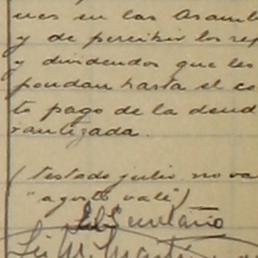 nes en las Asambl
y de percibir los re
y dividendos que les
pondan hasta el co
to pago de la deud
rantizada.
(Testado julio, no va
"agosto vale")
El Secretario